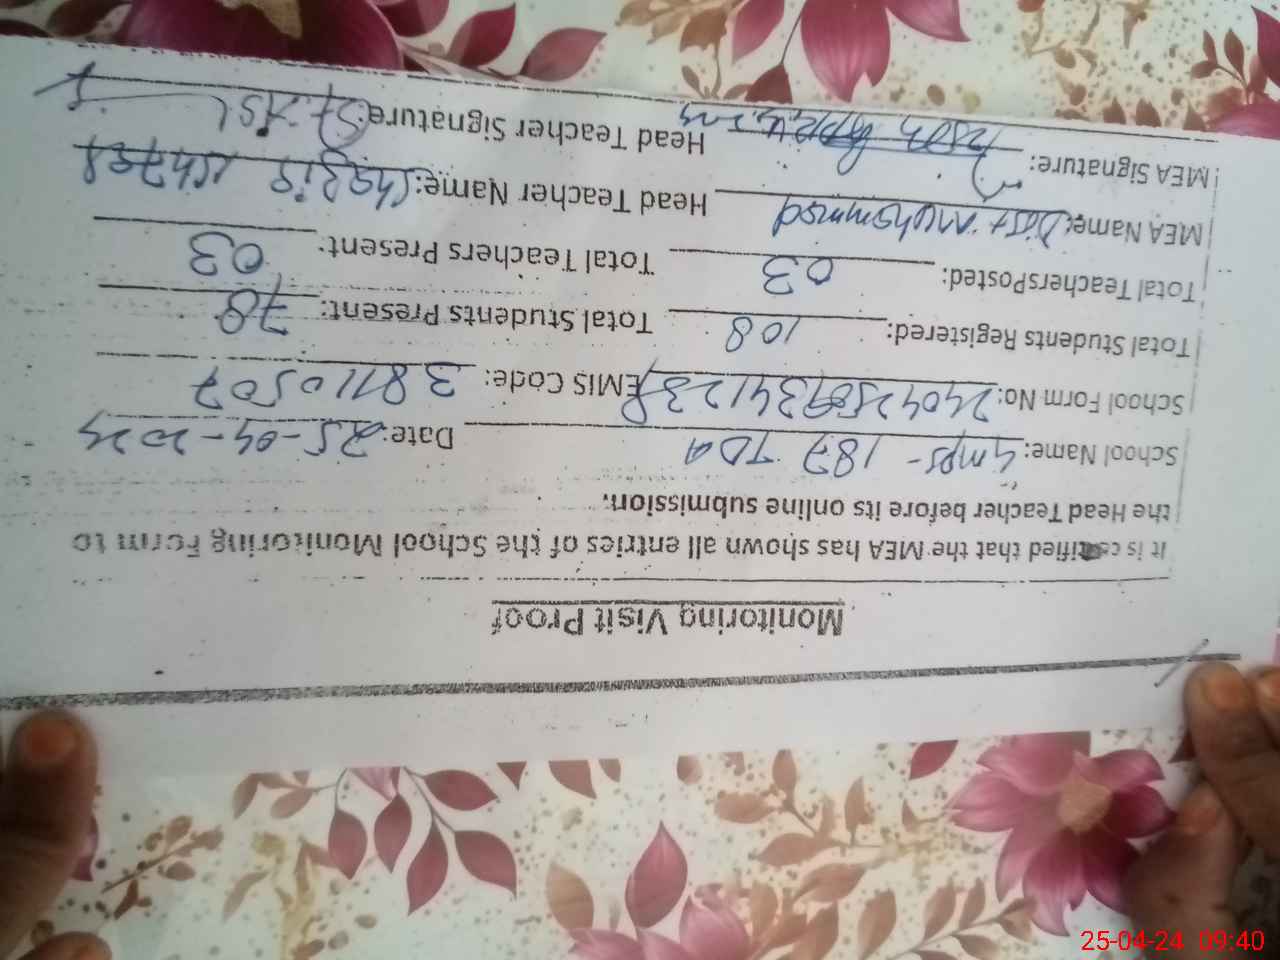 Monitoring Visit Proof
It is certified that the MEA has shown all entries of the School Monitoring Form to
the Head Teacher before its online submission.
School Name: GMPS- 187 TDA Date: 25-04-2024
School Form No: EMIS Code: 38110507
Total Students Registered: 108 Total Students Present: 78
Total TeachersPosted: 03 Total Teachers Present: 03
MEA Name: Dost Muhammad Head Teacher Name:
MEA Signature: Head Teacher Signature:
25-04-24 09:40